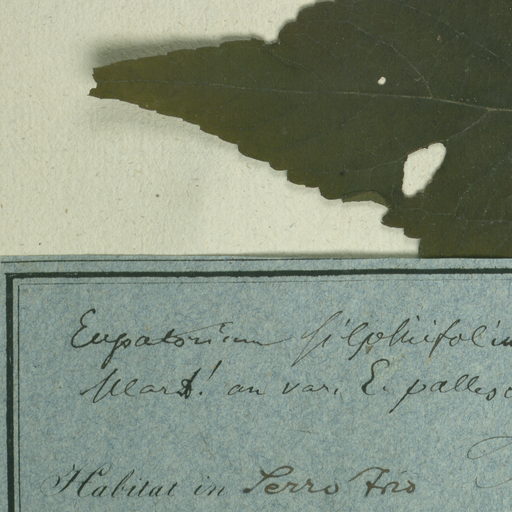 Eupatorium silphiifolium
Mart! an var. E. pallesc
Habitat in Serro Frio